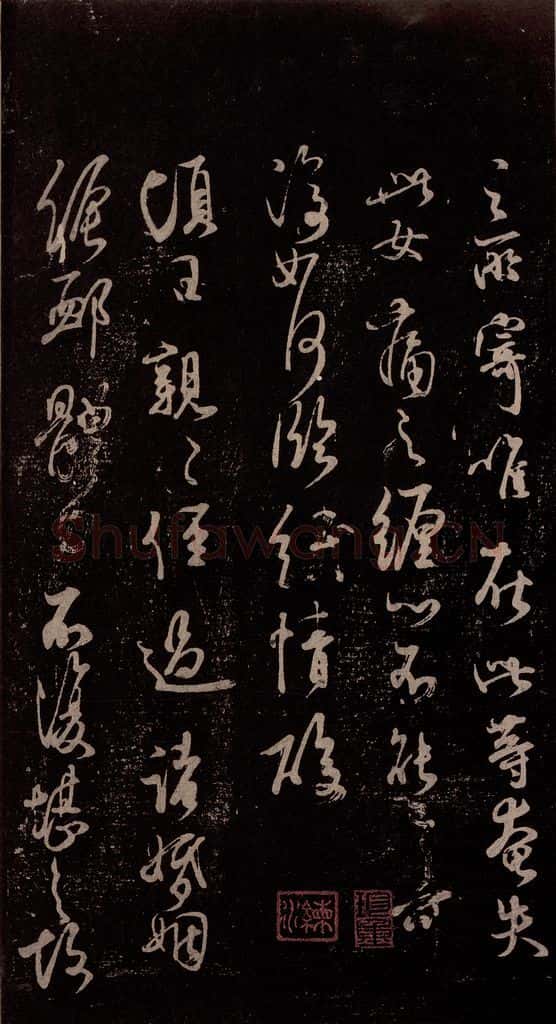 之所寄唯在此等奄失
此女痛之纏心不能已已可
復如何臨紙情酸
頃日親〻經過諸婚姻
不復堪之故
Shufawang.CN